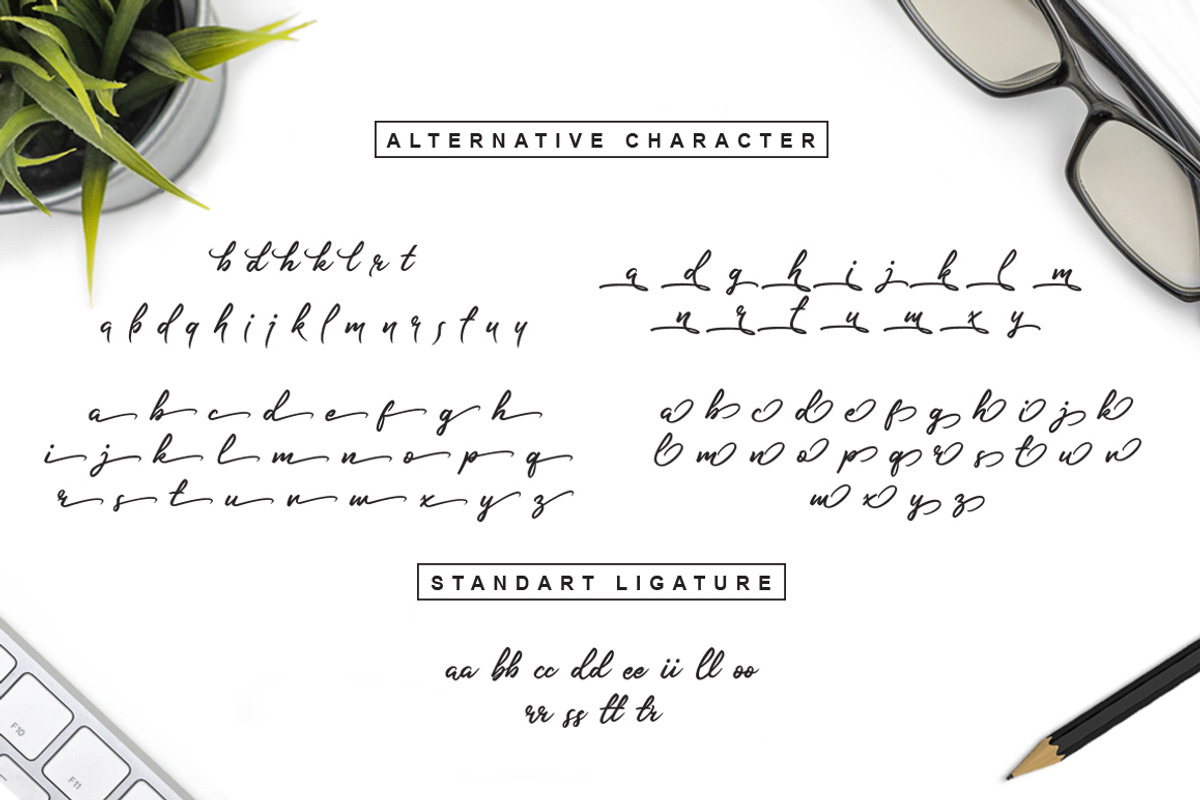 ALTERNATIVE CHARACTER
b d h k l r t
a b d g h i j k l m n r s t u y
a d g h i j k l m
n r t u m x y
a b c d e f g h
i j k l m n o p q
r s t u n m x y z
a b c d e f g h i j k
l m n o p q r s t u n
m x y z
STANDART LIGATURE
aa bb cc dd ee ii ll oo
rr ss tt tr
F10
F11